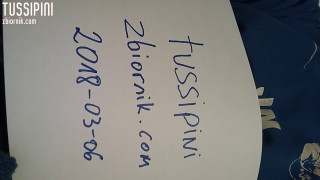 TUSSIPINI
zbiornik.com
tussipini
zbiornik.com
2018-03-06